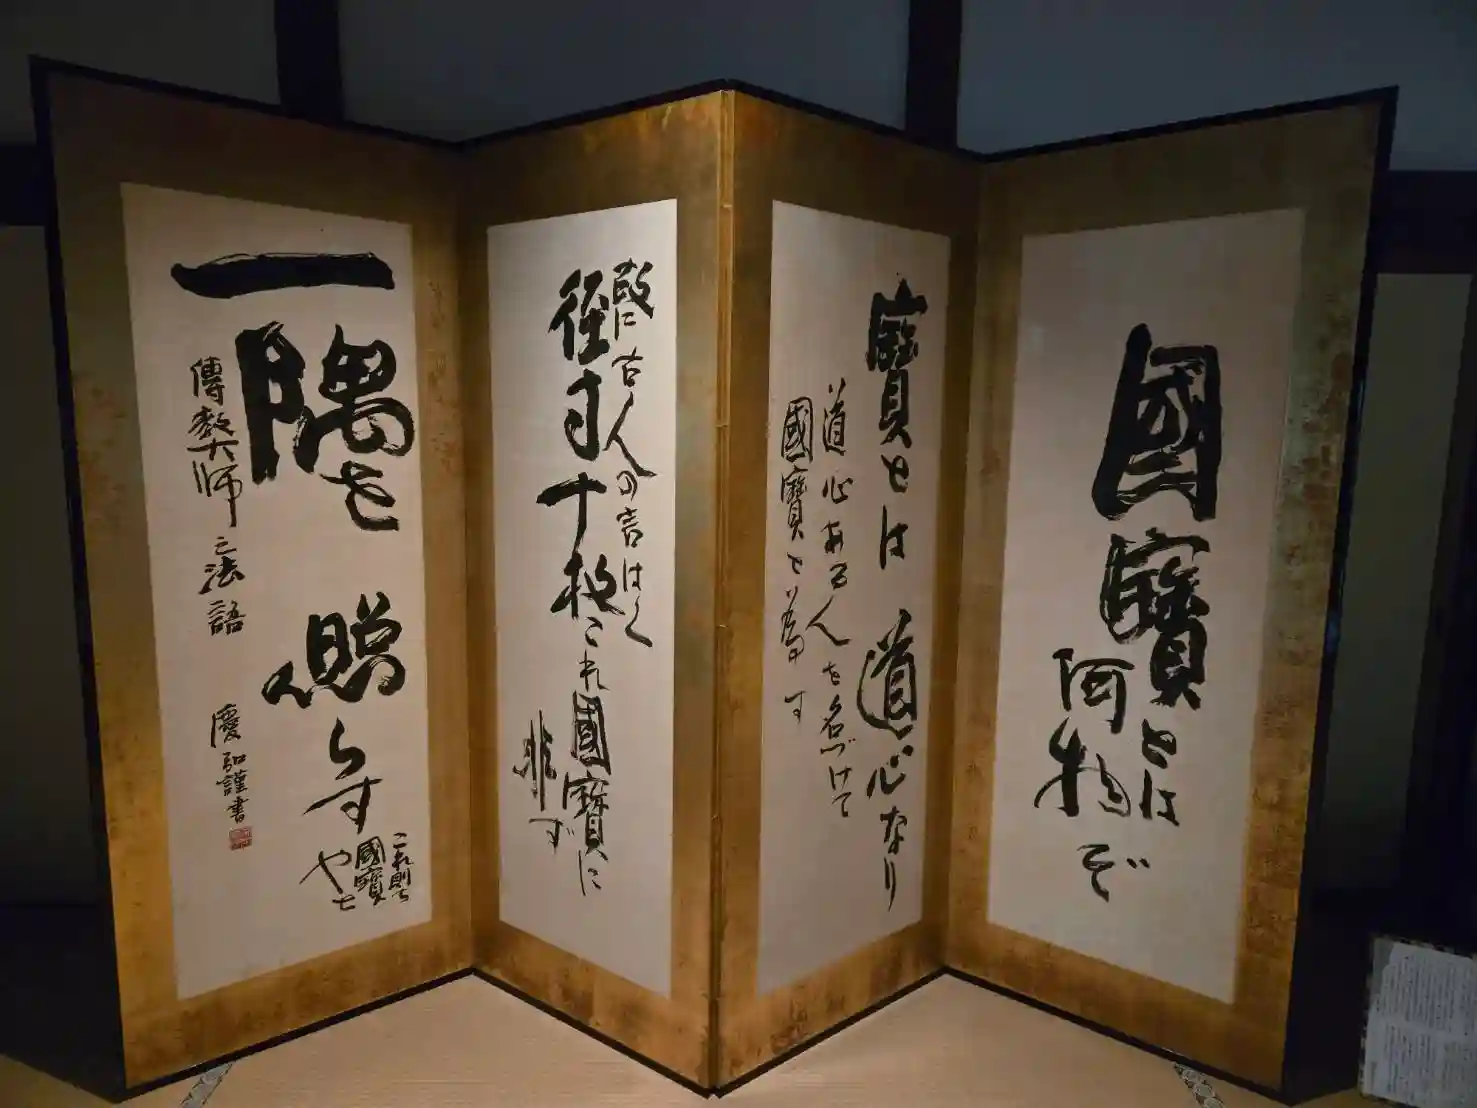 國寶とは
何物ぞ
寶とは道心なり
道心ある人を名づけて
國寶と為す
故に古人の言はく
径寸十枚これ國寶に
非ず
一隅を
照らす
これ則ち
國寶や
傳教大師之法語
慶弘謹書